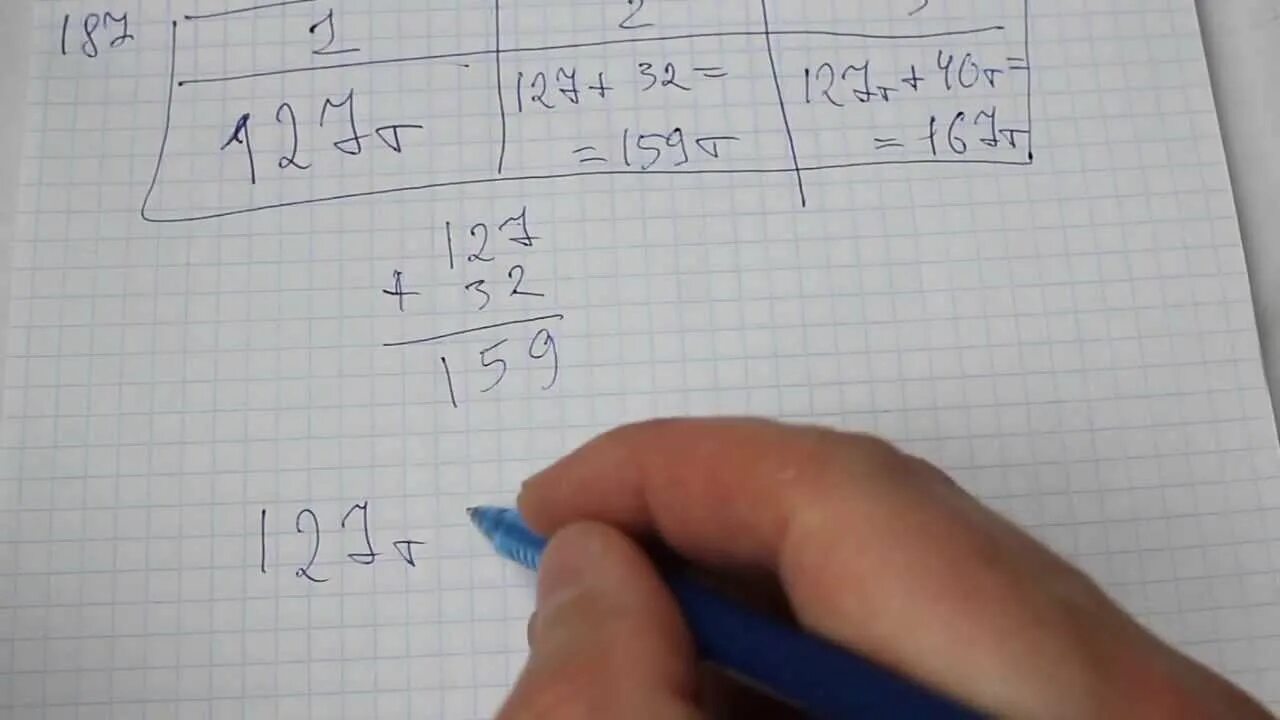 187
1 2
127т
127 + 32 =
= 159т
127т + 40т =
= 167т
127
+ 32
159
127т